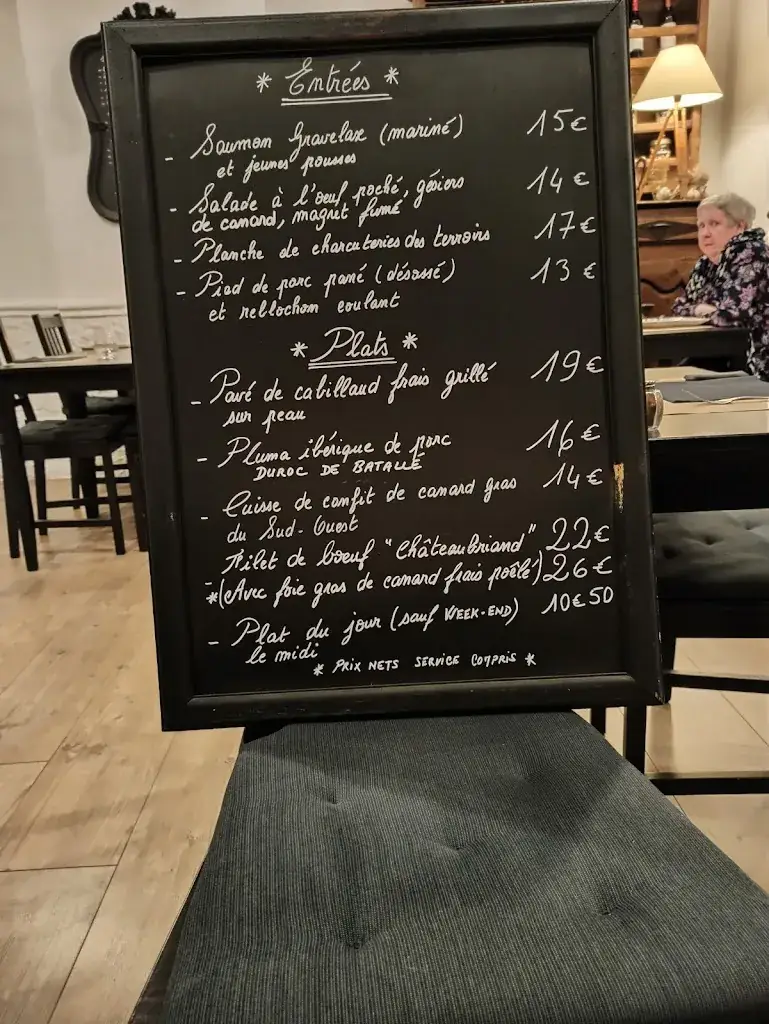 * Entrées *
- Saumon Gravelax (mariné) 15€
et jeunes pousses
- Salade à l'oeuf poché, gésiers 14€
de canard, magret fumé
- Planche de charcuteries des terroirs 17€
- Pied de porc pané (désossé) 13€
et reblochon coulant
* Plats *
- Pavé de cabillaud frais grillé 19€
sur peau
- Pluma ibérique de porc 16€
DUROC DE BATALLÉ
- Cuisse de confit de canard gras 14€
du Sud-Ouest
- Filet de boeuf "Châteaubriand" 22€
*(Avec foie gras de canard frais poêlé) 26€
- Plat du jour (sauf WEEK-END) 10€50
le midi
* PRIX NETS SERVICE COMPRIS *